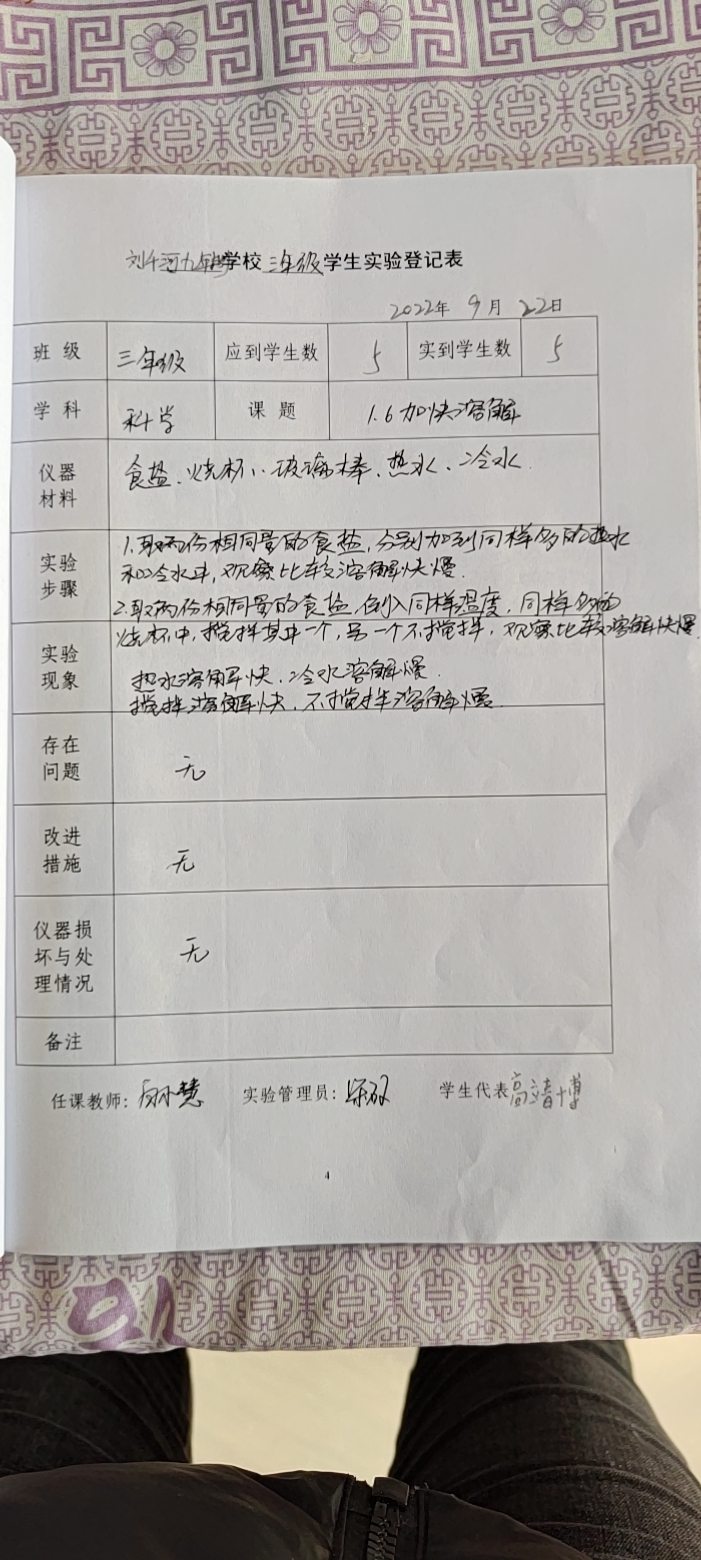 学校三年级学生实验登记表
2022年 9月 22日
班级 三年级 应到学生数 5 实到学生数 5
学科 科学 课题 1.6加快溶解
仪器材料 食盐、烧杯、玻璃棒、热水、冷水.
实验步骤 1.取两份相同量的食盐,分别加到同样多的热水
和冷水中,观察比较溶解快慢.
2.取两份相同量的食盐,倒入同样温度,同样多的
烧杯中,搅拌其中一个,另一个不搅拌,观察比较溶解快慢.
实验现象 热水溶解快,冷水溶解慢.
搅拌溶解快,不搅拌溶解慢.
存在问题 无
改进措施 无
仪器损坏与处理情况 无
备注
任课教师: 实验管理员: 学生代表 高靖博
4